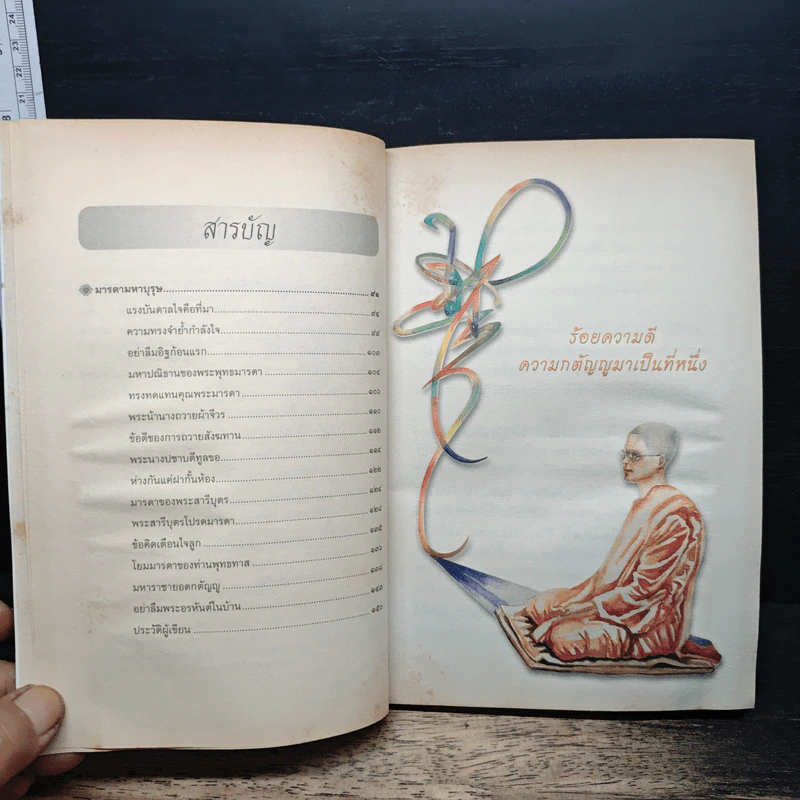 สารบัญ
มารดามหาบุรุษ ๙๑
แรงบันดาลใจคือที่มา ๙๔
ความทรงจำย้ำกำลังใจ ๙๙
อย่าลืมอิฐก้อนแรก ๑๐๓
มหาปณิธานของพระพุทธมารดา ๑๐๔
ทรงทดแทนคุณพระมารดา ๑๐๗
พระน้านางถวายผ้าจีวร ๑๑๐
ข้อดีของการถวายสังฆทาน ๑๑๒
พระนางปชาบดีทูลขอ ๑๑๔
ห่างกันแค่ฝากั้นห้อง ๑๒๒
มารดาของพระสารีบุตร ๑๒๔
พระสารีบุตรโปรดมารดา ๑๒๘
ข้อคิดเตือนใจลูก ๑๓๕
โยมมารดาของท่านพุทธทาส ๑๓๖
มหาราชายอดกตัญญู ๑๓๘
อย่าลืมพระอรหันต์ในบ้าน ๑๔๓
ประวัติผู้เขียน ๑๕๐
ร้อยความดี
ความกตัญญูมาเป็นที่หนึ่ง
24
23
22
21
8